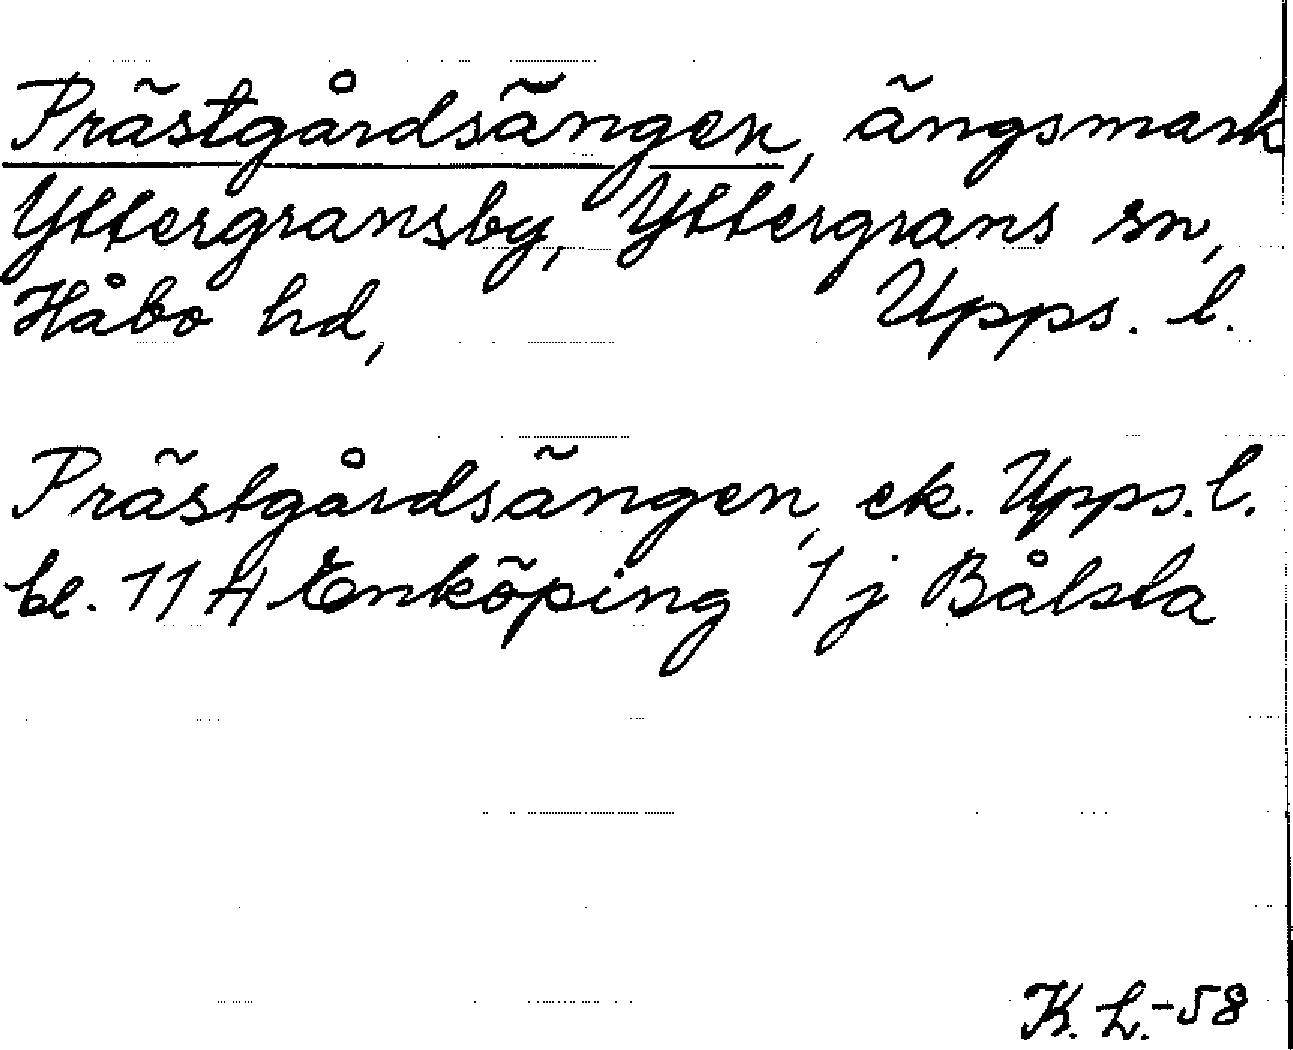 Prästgårdsängen, ängsmark
Yttergransby, Yttergrans sn,
Håbo hd, Upps. l.
Prästgårdsängen, ek. Upps. l.
bl. 11 H Enköping 1 j Bålsta
K. L.-58